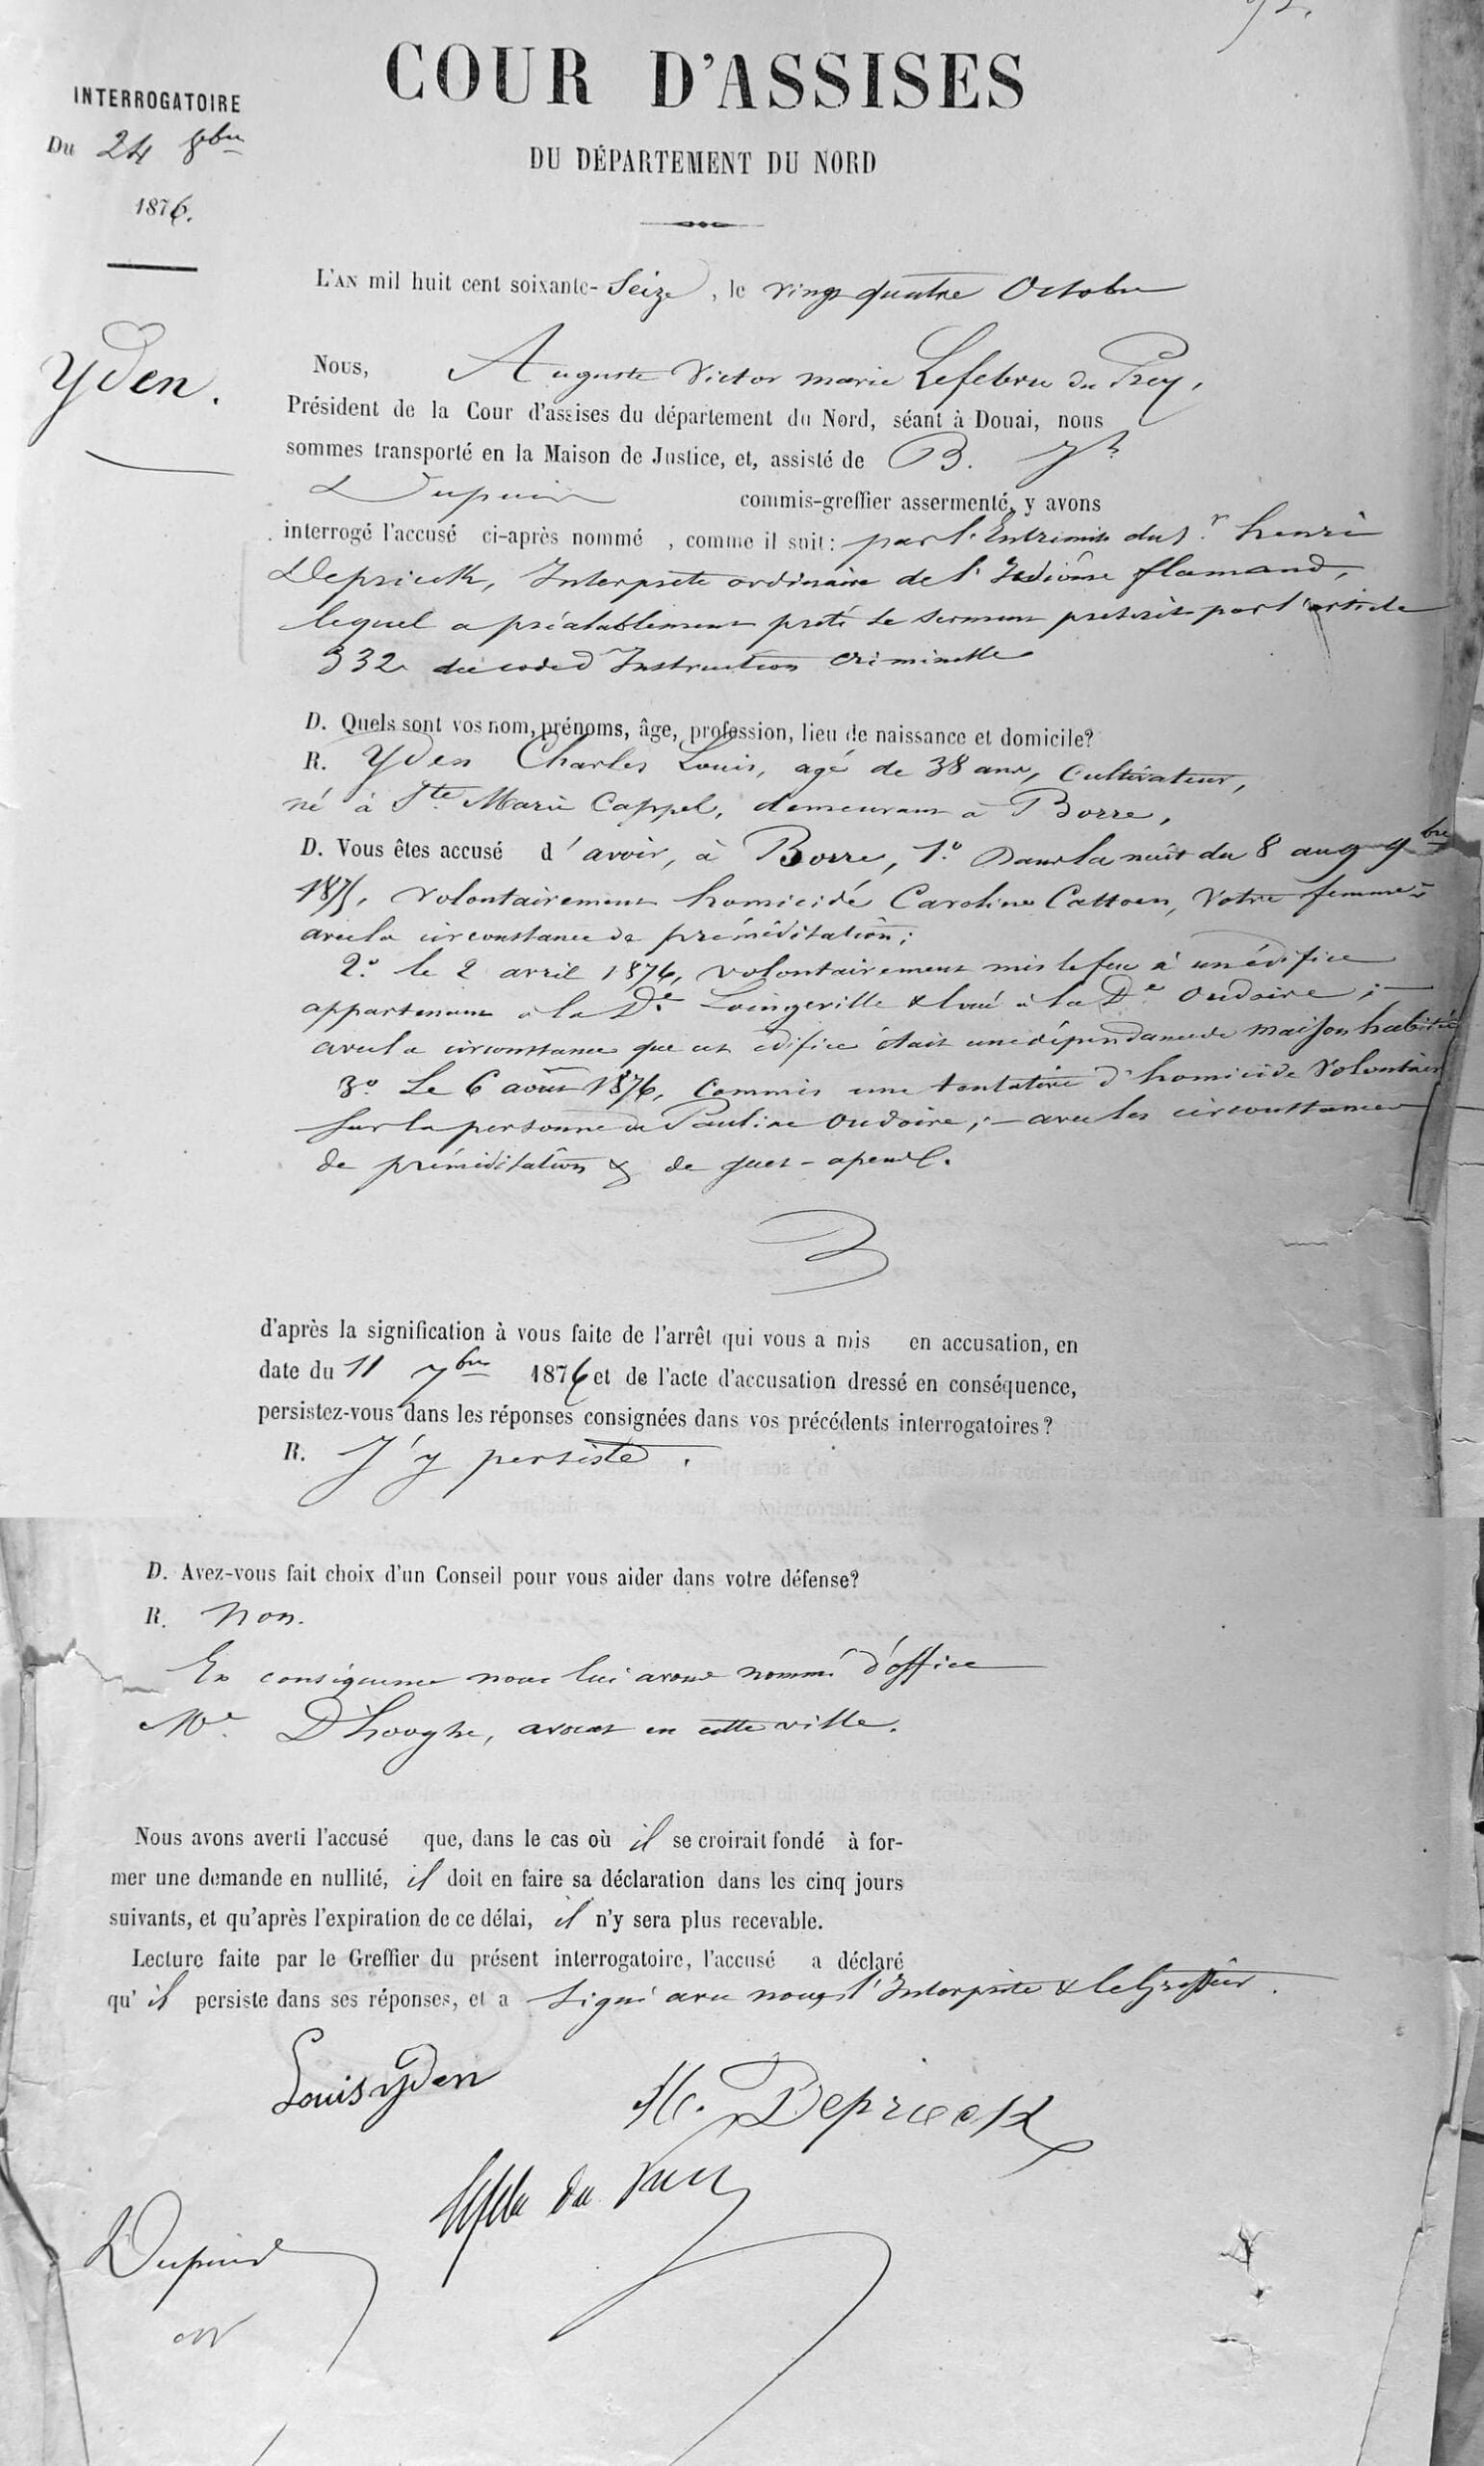 COUR D'ASSISES
DU DÉPARTEMENT DU NORD
INTERROGATOIRE
Du 24 8bre
1876.
Yden.
L'AN mil huit cent soixante-Seize, le vingt quatre Octobre
Nous, Auguste Victor marie Lefebvre du Prey,
Président de la Cour d'assises du département du Nord, séant à Douai, nous
sommes transporté en la Maison de Justice, et, assisté de B.
commis-greffier assermenté, y avons
interrogé l'accusé ci-après nommé , comme il suit : par l'Entremise du Sr. henri
Deprieck, Interprète ordinaire de l'Idiôme flamand,
lequel a préalablement prêté le serment prescrit par l'article
332 du code d'Instruction criminelle
D. Quels sont vos nom, prénoms, âge, profession, lieu de naissance et domicile?
R. Yden Charles Louis, agé de 38 ans, Cultivateur,
né à Ste Marie Cappel, demeurant à Borre,
D. Vous êtes accusé d'avoir, à Borre, 1.° Dans la nuit du 8 au 9 9bre
1875, volontairement homicidé Caroline Cattoen, Votre femme;
avec la circonstance de préméditation;
2.° le 2 avril 1876, volontairement mis le feu à un édifice
appartenant à la De. Loingeville & loué à la De Oudoire ;—
avec la circonstance que cet édifice était une dépendance de maison habitée
3.° Le 6 août 1876, commis une tentative d'homicide Volontaire
sur la personne de Pauline Oudoire ;— avec les circonstances
de préméditation & de guet-apens.
d'après la signification à vous faite de l'arrêt qui vous a mis en accusation, en
date du 11 7bre 1876 et de l'acte d'accusation dressé en conséquence,
persistez-vous dans les réponses consignées dans vos précédents interrogatoires ?
R. J'y persiste.
D. Avez-vous fait choix d'un Conseil pour vous aider dans votre défense?
R. Non.
En conséquence nous lui avons nommé d'office
Me. D'hooghe, avocat en cette ville.
Nous avons averti l'accusé que, dans le cas où il se croirait fondé à for-
mer une demande en nullité, il doit en faire sa déclaration dans les cinq jours
suivants, et qu'après l'expiration de ce délai, il n'y sera plus recevable.
Lecture faite par le Greffier du présent interrogatoire, l'accusé a déclaré
qu'il persiste dans ses réponses, et a signé avec nous, l'Interprète & le Greffier.
Louis yden
H. Deprieck